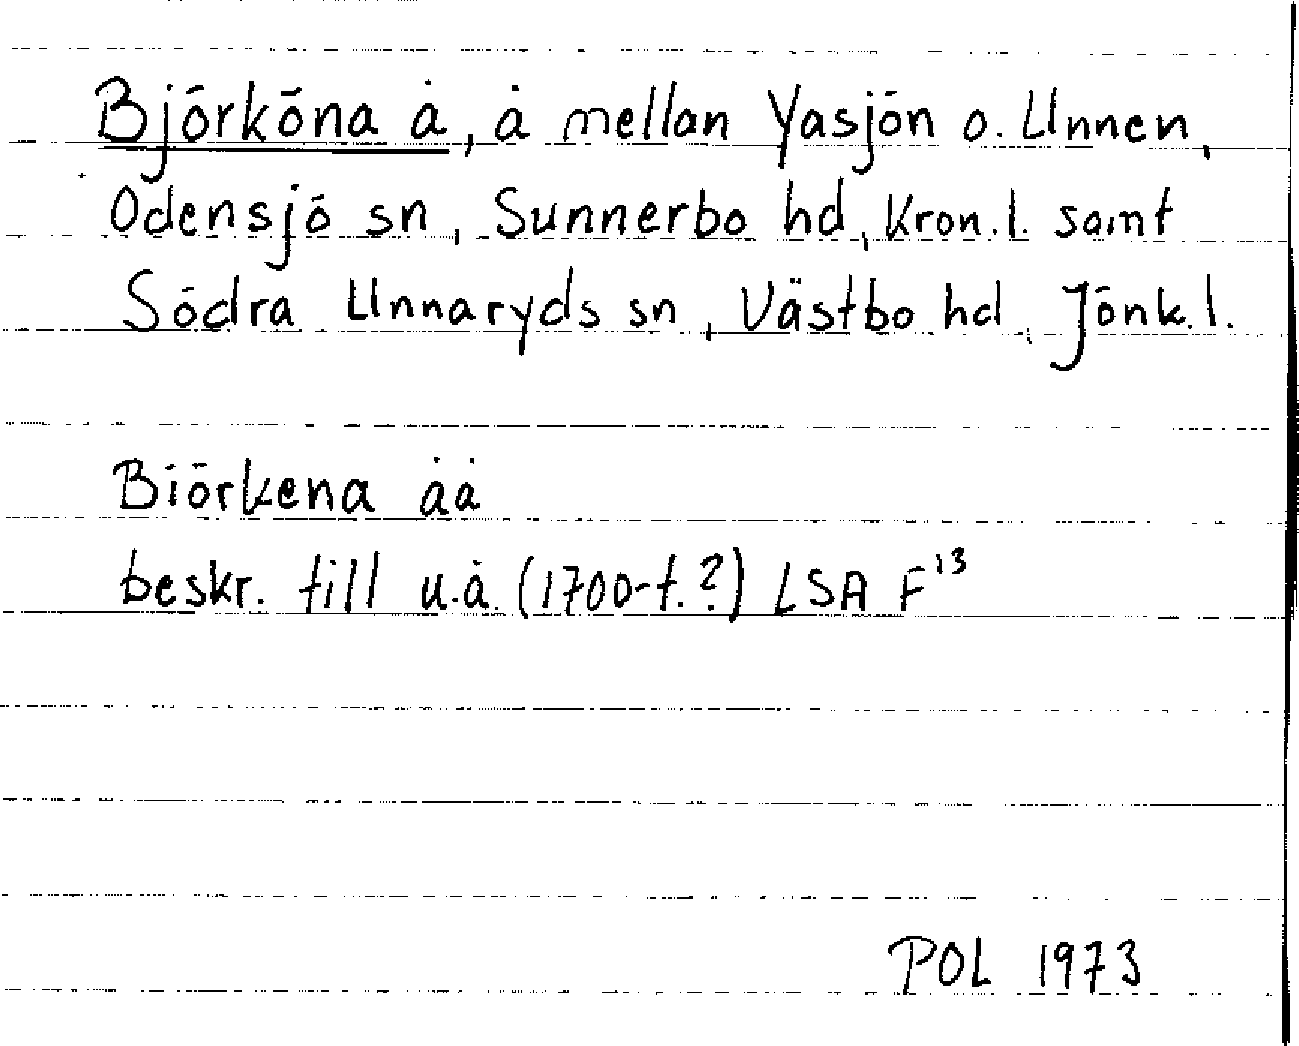 Björköna å, å mellan Yasjön o. Unnen,
Odensjö sn, Sunnerbo hd, Kron.l. samt
Södra Unnaryds sn, Västbo hd, Jönk.l.
Biörkena åå
beskr. till u.å. (1700-t.?) LSA F¹³
POL 1973